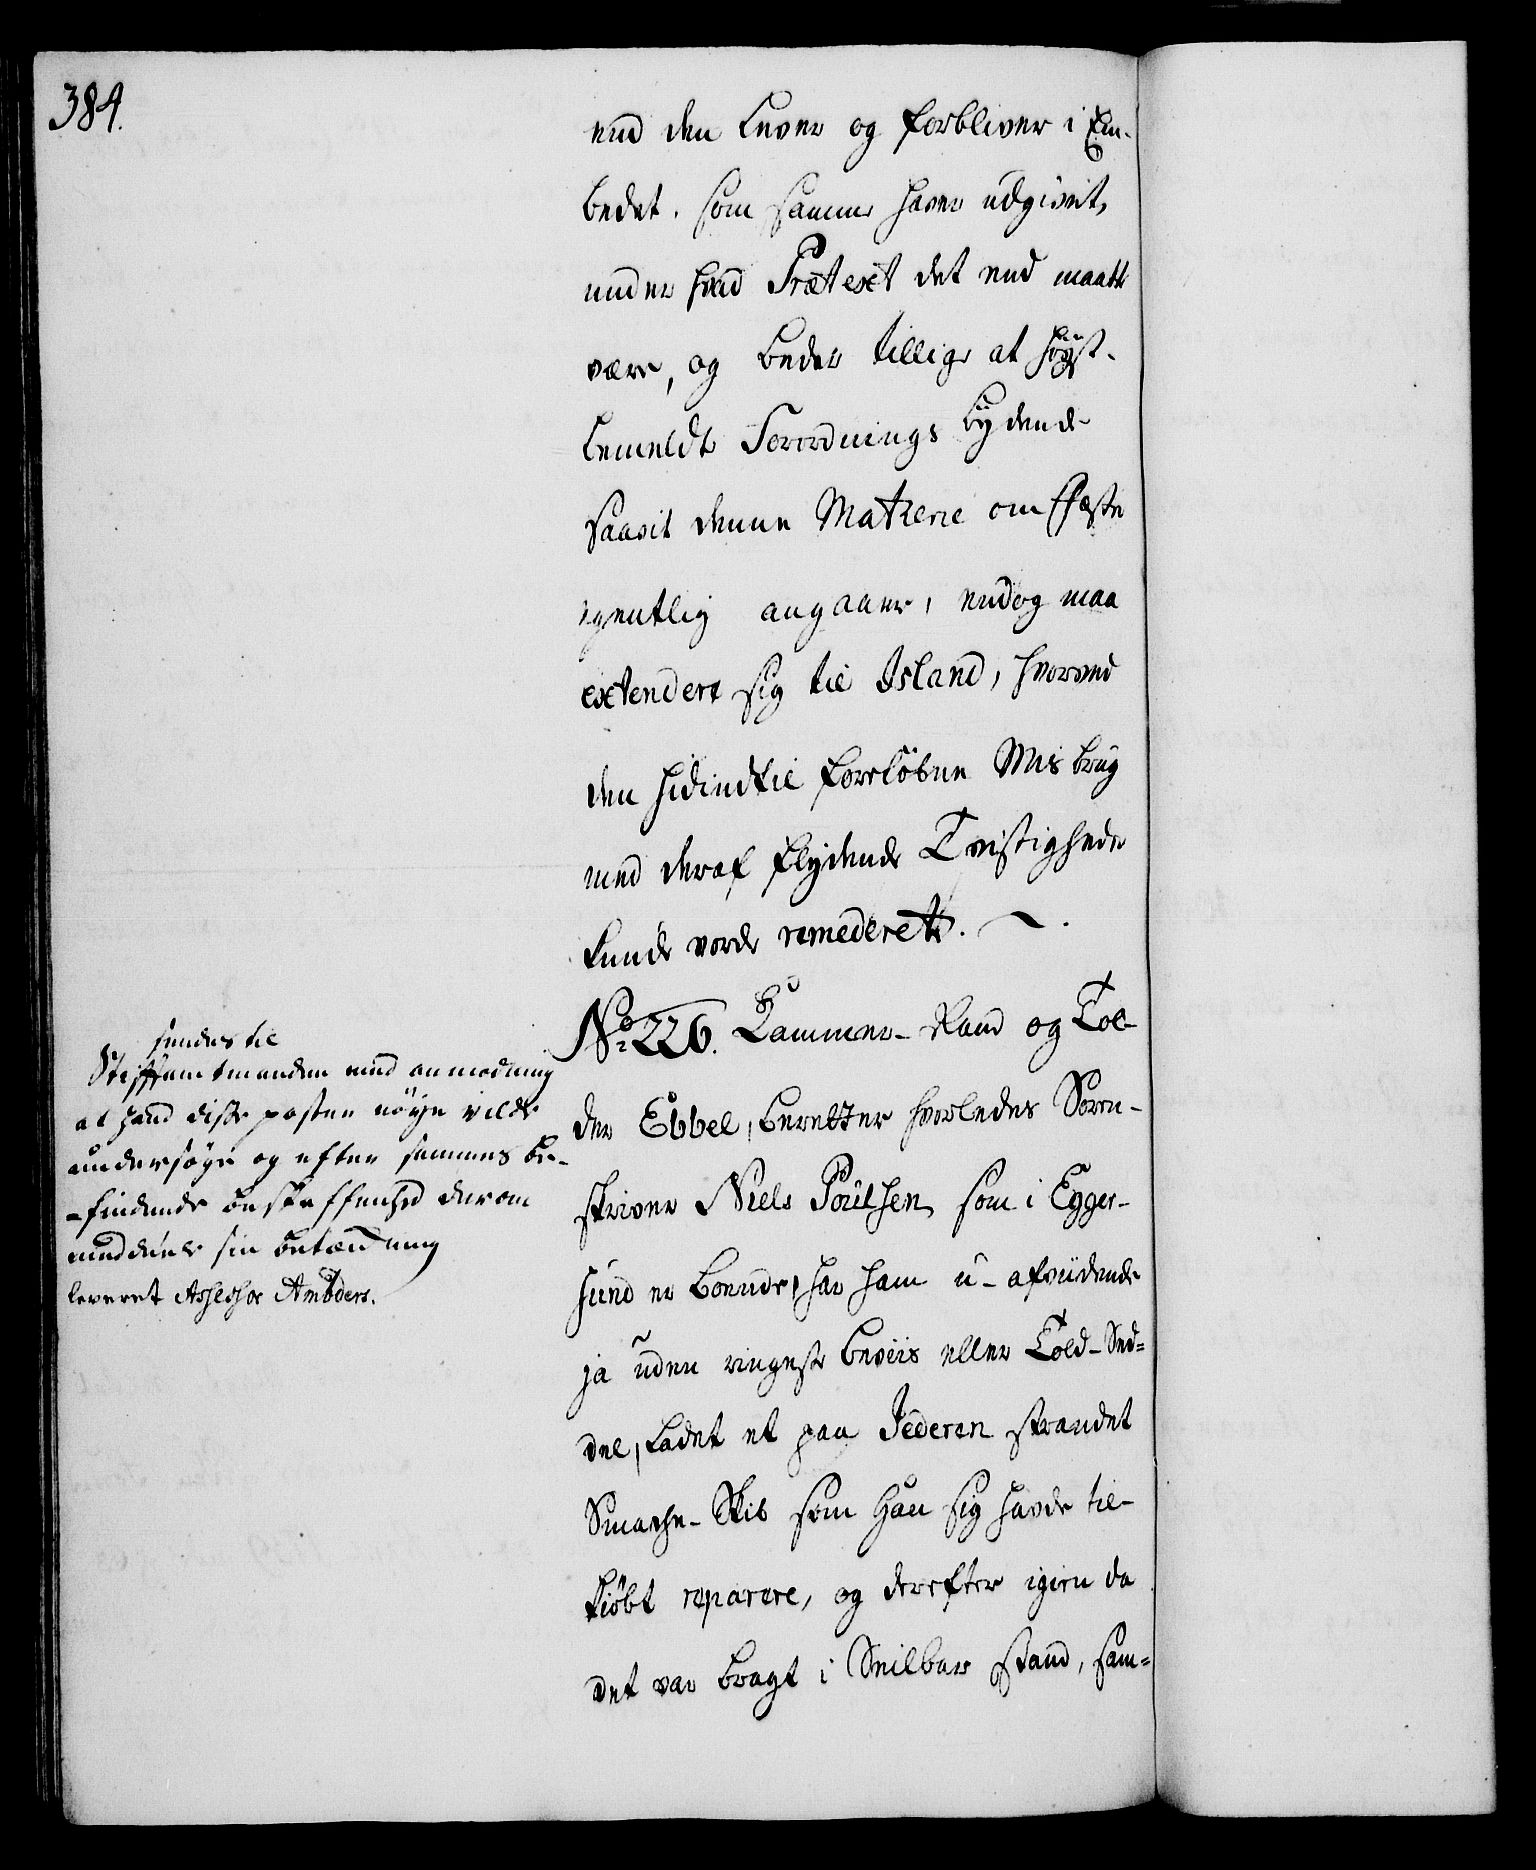 384.
end den Lever og forbliver i Em-
bedet. som samme haver udgivet,
under hvad Prætext det end maatte
være, og beder tillige at høyst-
bemeldte Forordnings bydende
saavit denne Materie om Fæste
egentlig angaaer, endog maa
extendere sig til Island, hvorved
den hidindtil foreløbne Misbrug
med deraf flydende Tvistigheder
kunde vorde remederet.
No. 226. Kammer-Raad og Tol-
der Ebbel, beretter hvorledes Soren-
skriver Niels Poulsen som i Egger-
sund er boende, har ham u-afvidende
ja uden ringeste beviis eller Told-Sed-
del, ladet et paa Jederen strandet
Smache-Skib som Han sig havde til-
kiøbt reparere, og derefter igien da
det var bragt i Seilbar stand, sam-
sendes til
Stiftamtmanden med anmodning
at hand disse poster nøye vilde
undersøge og efter sammes be-
-findende beskaffenhed derom
meddeele sin betænkning
leveret Assessor Ambders.